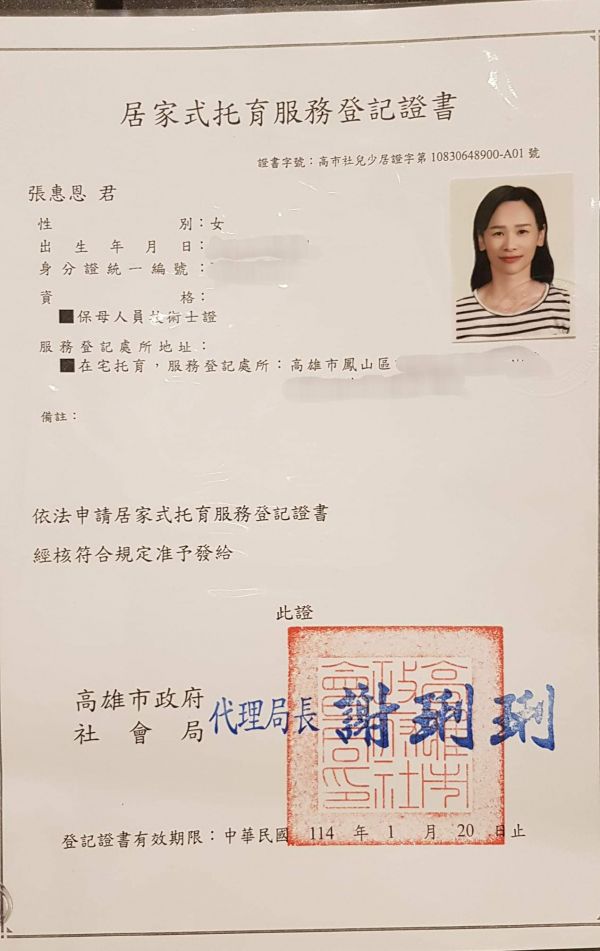 居家式托育服務登記證書
證書字號：高市社兒少居證字第 10830648900-A01 號
張惠恩 君
性別：女
出生年月日：
身分證統一編號：
資格：
■保母人員技術士證
服務登記處所地址：
■在宅托育，服務登記處所：高雄市鳳山區
備註：
依法申請居家式托育服務登記證書
經核符合規定准予發給
此證
高雄市政府
社會局
代理局長 謝琍琍
高雄市政府社會局印
登記證書有效期限：中華民國 114 年 1 月 20 日止